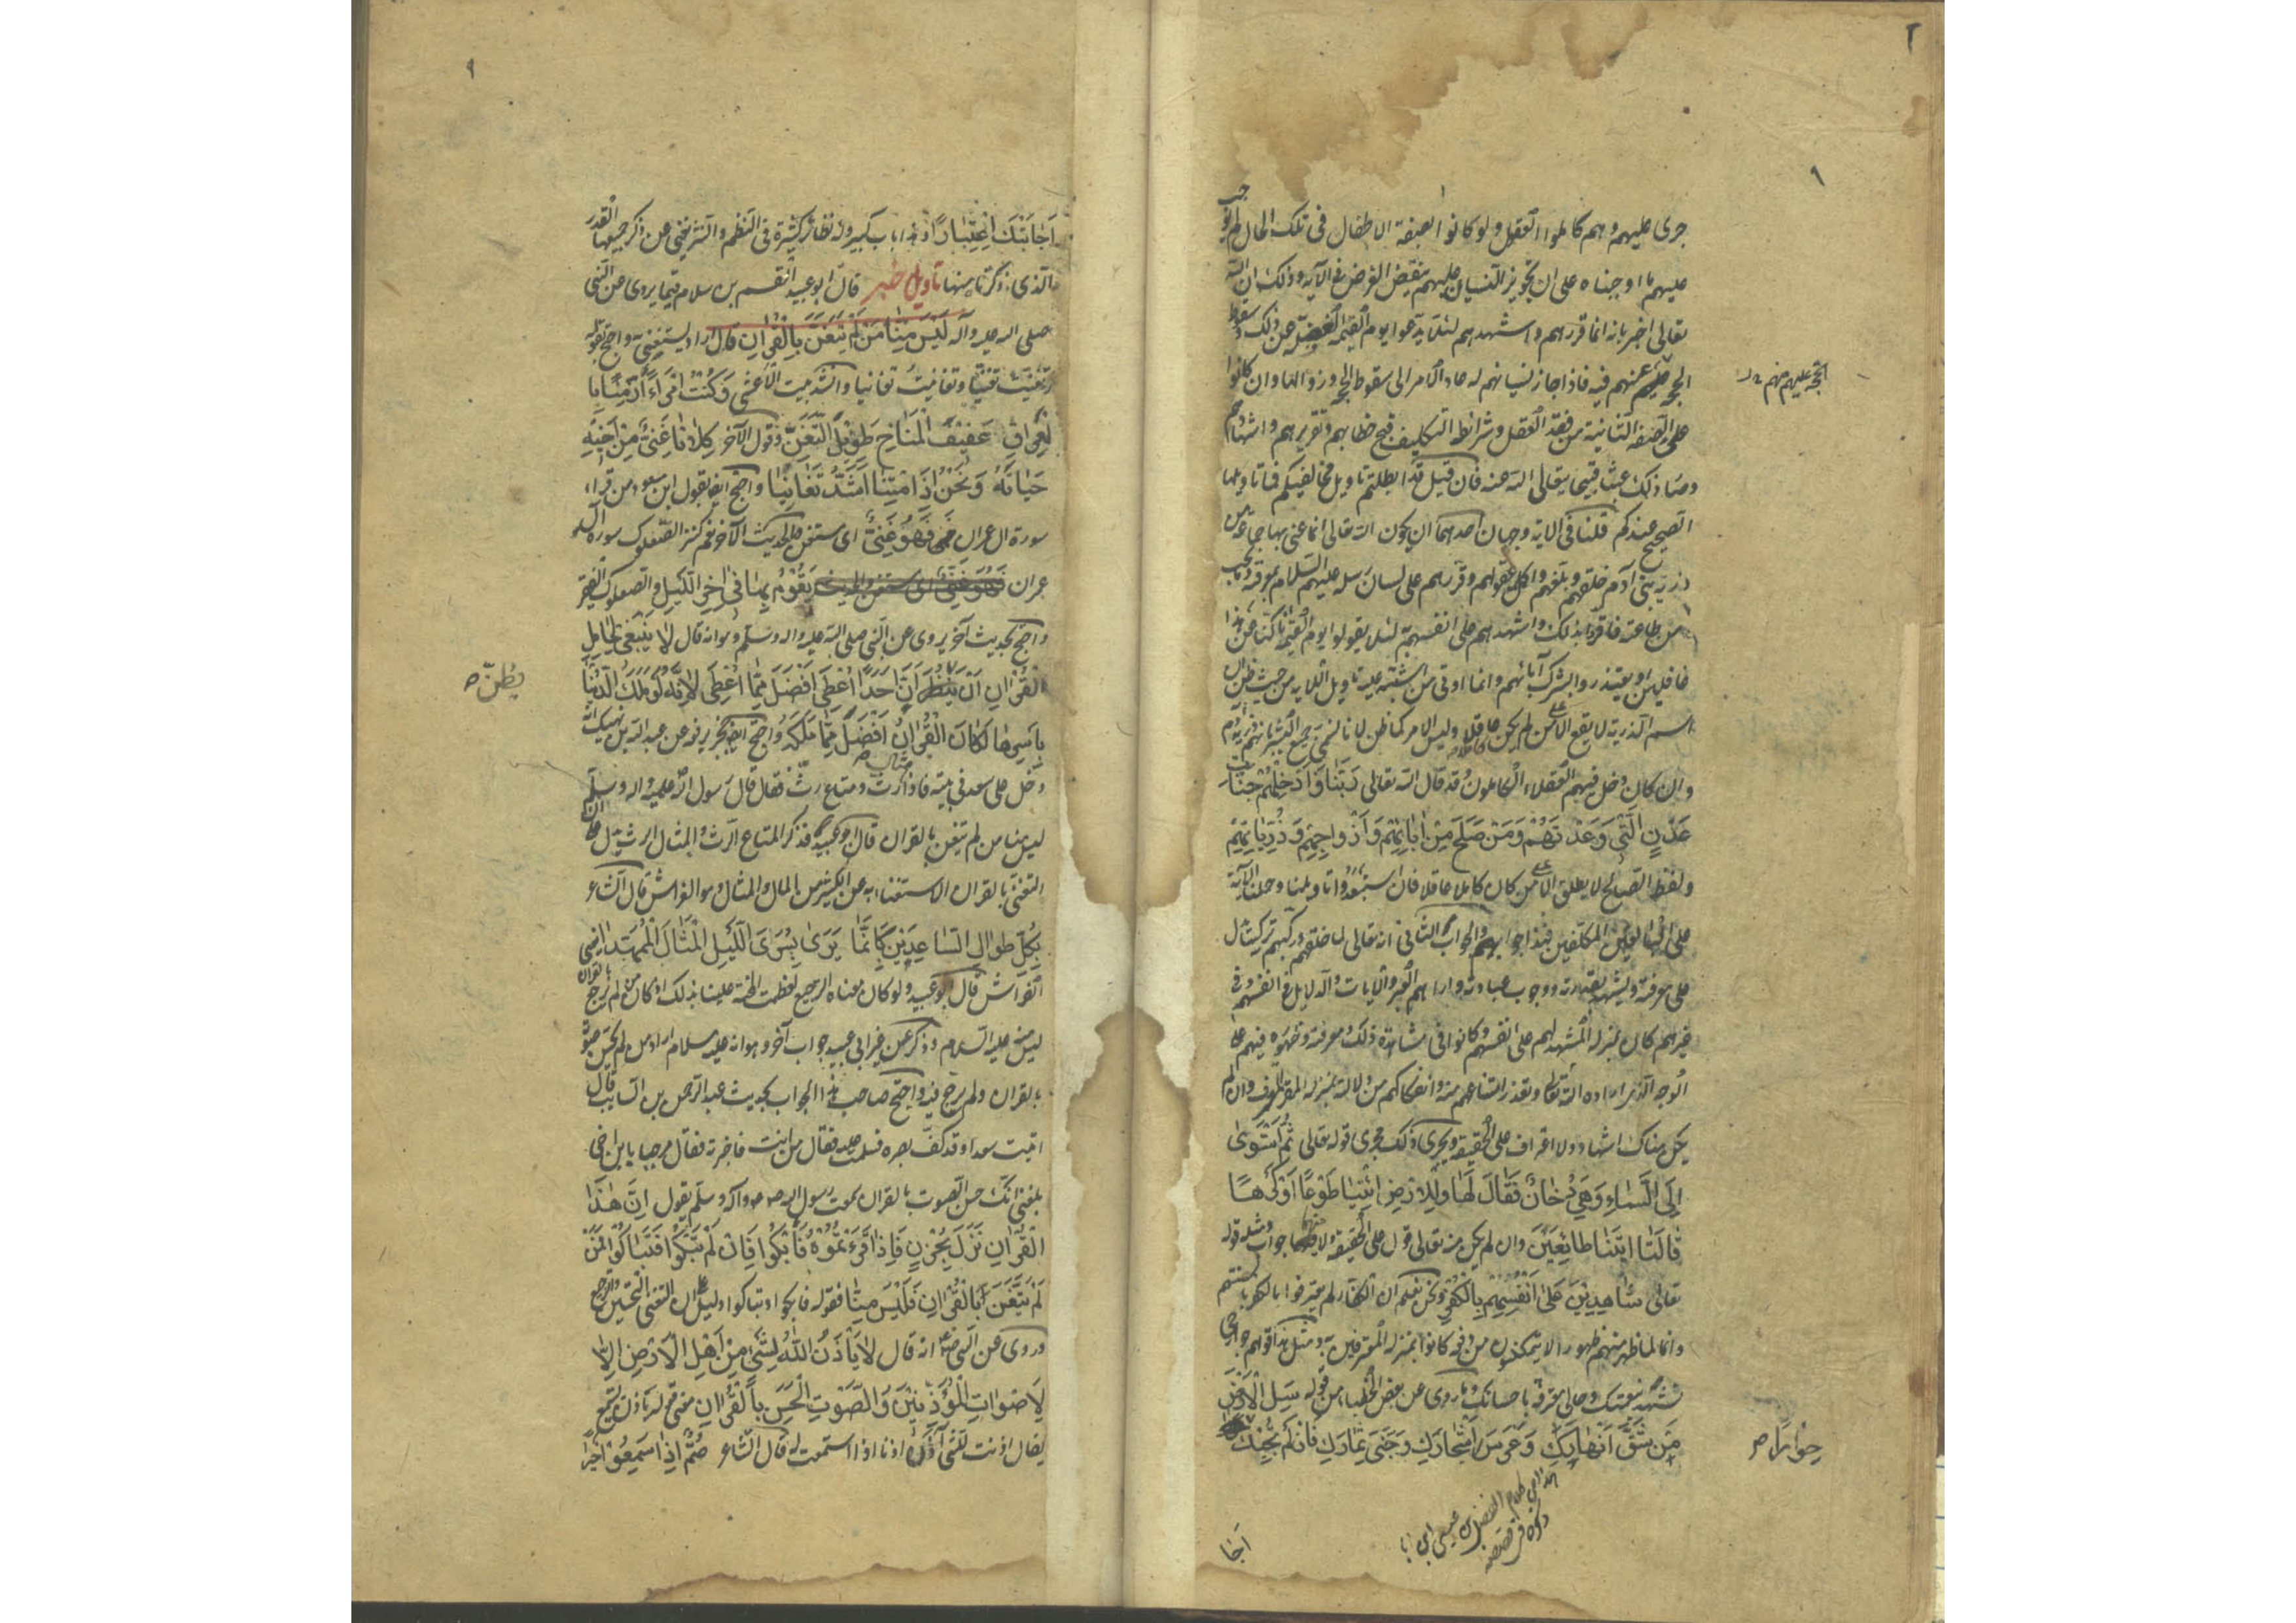 ٢
٩
جرى عليهم وهم كاملوا العقول ولو كانوا بصفة الاطفال فى تلك الحال لم يجب
عليهم ما اوجبناه على ان تجويز النسيان عليهم ينقض الغرض فى الآية وذلك ان الله
تعالى اخبر بانه انما قررهم واشهدهم لئلا يدعوا يوم القيمة الغفلة عن ذلك وسقوط
الحجة عنهم فيه فاذا جاز نسيانهم له عاد الامر الى سقوط الحجة وزوالها وان كانوا
الحجة عليهم
على الصفة الثانية من فقد العقل وشرائط التكليف قبح خطابهم وتقريرهم واشهادهم
وصار ذلك عبثا قبيحا يتعالى الله عنه فان قيل قد ابطلتم تاويل مخالفيكم فما تاويلها
الصحيح عندكم قلنا فى الاية وجهان احدهما ان يكون الله تعالى انما عنى بها جماعة من
ذرية بنى آدم خلقهم وبلغهم واكمل عقولهم وقررهم على لسان رسله عليهم السلام بمعرفته وما يجب
من طاعته فاقروا بذلك واشهدهم على انفسهم به لئلا يقولوا يوم القيمة انا كنا عن هذا
غافلين او يعتذروا بشرك آبائهم وانما اوتى من اشتبه عليه تاويل الاية من حيث ظن ان
اسم الذرية لا يقع الا على من لم يكن عاقلا وليس الامر كما ظن لانا نسمى جميع البشر بانهم ذرية آدم
وان كان دخل فيهم العقلاء الكاملون وقد قال الله تعالى رَبَّنَا وَاَدْخِلْهُمْ جَنَّاتِ
عَدْنٍ الَّتِي وَعَدْتَهُمْ وَمَنْ صَلَحَ مِنْ اٰبَائِهِمْ وَاَزْوَاجِهِمْ وَذُرِّيَاتِهِمْ
ولفظ الصالح لا يطلق الا على من كان كاملا عاقلا فان استبعدوا تاويلنا وحملنا الآية
على البالغين المكلفين فهذا جوابهم والجواب الثانى انه تعالى لما خلقهم وركبهم تركيبا يدل
على معرفته ويشهد بقدرته ووجوب عبادته واراهم العبر والايات والدلايل فى انفسهم وفى
غيرهم كان بمنزلة المشهد لهم على انفسهم وكانوا فى مشاهدة ذلك ومعرفته وظهوره فيهم على
الوجه الذى اراده الله تعالى وتعذر امتناعهم منه وانفكاكهم من دلالته بمنزلة المقر المعترف وان لم
يكن هناك اشهاد ولا اعتراف على الحقيقة ويجرى ذلك مجرى قوله تعالى ثُمَّ اسْتَوىٰ
اِلَى السَّمَاءِ وَهِيَ دُخَانٌ فَقَالَ لَهَا وَلِلْاَرْضِ ائْتِيَا طَوْعًا اَوْ كَرْهًا
قَالَتَا اَتَيْنَا طَائِعِيْنَ وان لم يكن منه تعالى قول على الحقيقة ولا منهما جواب ومثله قوله
تعالى شَاهِدِيْنَ عَلىٰ اَنْفُسِهِمْ بِالْكُفْرِ ونحن نعلم ان الكفار لم يعترفوا بالكفر بالسنتهم
وانما لما ظهر منهم ظهورا لا يتمكنون من دفعه كانوا بمنزلة المعترفين به ومثل هذا قولهم جوارحى
تشهد بنعمتك وحالى معترفة باحسانك وما روى عن بعض الخطباء من قوله سَلِ الْاَرْضَ
مَنْ شَقَّ اَنْهَارَكِ وَغَرَسَ اَشْجَارَكِ وَجَنىٰ ثِمَارَكِ فَاِنْ لَمْ تُجِبْكَ
حِوَارًا ص
اَجَا
٩
اَجَابَتْكَ اعْتِبَارًا وهذا باب كبير وله نظائر كثيرة فى النظم والنثر يغنى عن ذكر جميعها القدر
الذى ذكرناه منها تاويل خبر قال ابو عبيد القسم بن سلام فيما يروى عن النبى
صلى الله عليه وآله لَيْسَ مِنَّا مَنْ لَمْ يَتَغَنَّ بِالْقُرْاٰنِ قال اراد يستغنى به واحتج بقوله
تغنيت تغنيا وتغانيت تغانيا وانشد بيت الاعشى وَكُنْتُ امْرَءًا زَمَنًا بِا
لْعِرَاقِ عَفِيْفَ الْمَنَاخِ طَوِيْلَ التَّغَنّ وقول الآخر كِلَانَا غَنِىٌّ عَنْ اَخِيْهِ
حَيَاتَهُ وَنَحْنُ اِذَا مِتْنَا اَشَدُّ تَغَانِيًا واحتج ايضا بقول ابن مسعود من قراء
سورة ال عمران فَهُوَ غَنِىٌّ اى مستغن وبالحديث الآخر نعم كنز الصعلوك سورة آل
عمران يَقُوْمُ بِهَا فِىْ اٰخِرِ اللَّيْلِ والصعلوك الفقير
واحتج بحديث آخر يروى عن النبى صلى الله عليه واله وسلم وهو انه قال لَا يَنْبَغِىْ لِحَامِلِ
الْقُرْاٰنِ اَنْ يَظُنَّ اَنَّ اَحَدًا اُعْطِىَ اَفْضَلَ مِمَّا اُعْطِىَ لِاَنَّهُ لَوْ مَلَكَ الدُّنْيَا
يظنّ ص
بِاَسْرِهَا لَكَانَ الْقُرْاٰنُ اَفْضَلَ مِمَّا مَلَكَهُ واحتج ايضا بخبر يرفعه عن عبد الله بن نهيك انه
دخل على سعد فى بيته فاذا مثال رث ومتاع رث فقال قال رسول الله صلى الله عليه واله وسلم
ليس منا من لم يتغن بالقران قال ابو عبيد فذكر المتاع الرث والمثال الرث يدل على ان
التغنى بالقران الاستغناء به عن الكثير من المال والمثال وهو الفراش قال الشاعر
بِكُلِّ طِوَالِ السَّاعِدَيْنِ كَاَنَّمَا يَرَىٰ بِسُرَى اللَّيْلِ الْمِثَالَ الْمُمَهَّدَا يعنى
الفراش قال ابو عبيد ولو كان معناه الترجيع لعظمت المحنة علينا بذلك اذ كان من لم يرجع بالقران
ليس منه عليه السلام وذكر عن غير ابى عبيد جواب آخر وهو انه عليه سلام اراد من لم يحسن صوته
بالقران ولم يرجع فيه واحتج صاحب هذا الجواب بحديث عبد الرحمن بن السايب قال
اتيت سعدا وقد كف بصره فسلمت عليه فقال من انت فاخبرته فقال مرحبا يا بن اخى
بلغنى انك حسن الصوت بالقران سمعت رسول الله ص وآله وسلم يقول اِنَّ هٰذَا
الْقُرْاٰنَ نَزَلَ بِحُزْنٍ فَاِذَا قَرَءْتُمُوْهُ فَابْكُوْا فَاِنْ لَمْ تَبْكُوْا فَتَبَاكَوْا فَمَنْ
لَمْ يَتَغَنَّ بِالْقُرْاٰنِ فَلَيْسَ مِنَّا فقوله فابكوا او تباكوا دليل على ان التغنى التحسين والترجيع
وروى عن النبى ص انه قال لَا يَأْذَنُ اللهُ لِشَىْءٍ مِنْ اَهْلِ الْاَرْضِ اِلَّا
لِاَصْوَاتِ الْمُؤَذِّنِيْنَ وَالصَّوْتِ الْحَسَنِ بِالْقُرْاٰنِ معنى قوله يأذن يستمع
يقال اذنت للشىء آذن اذنا اذا استمعت له قال الشاعر صُمٌّ اِذَا سَمِعُوْا خَيْرًا